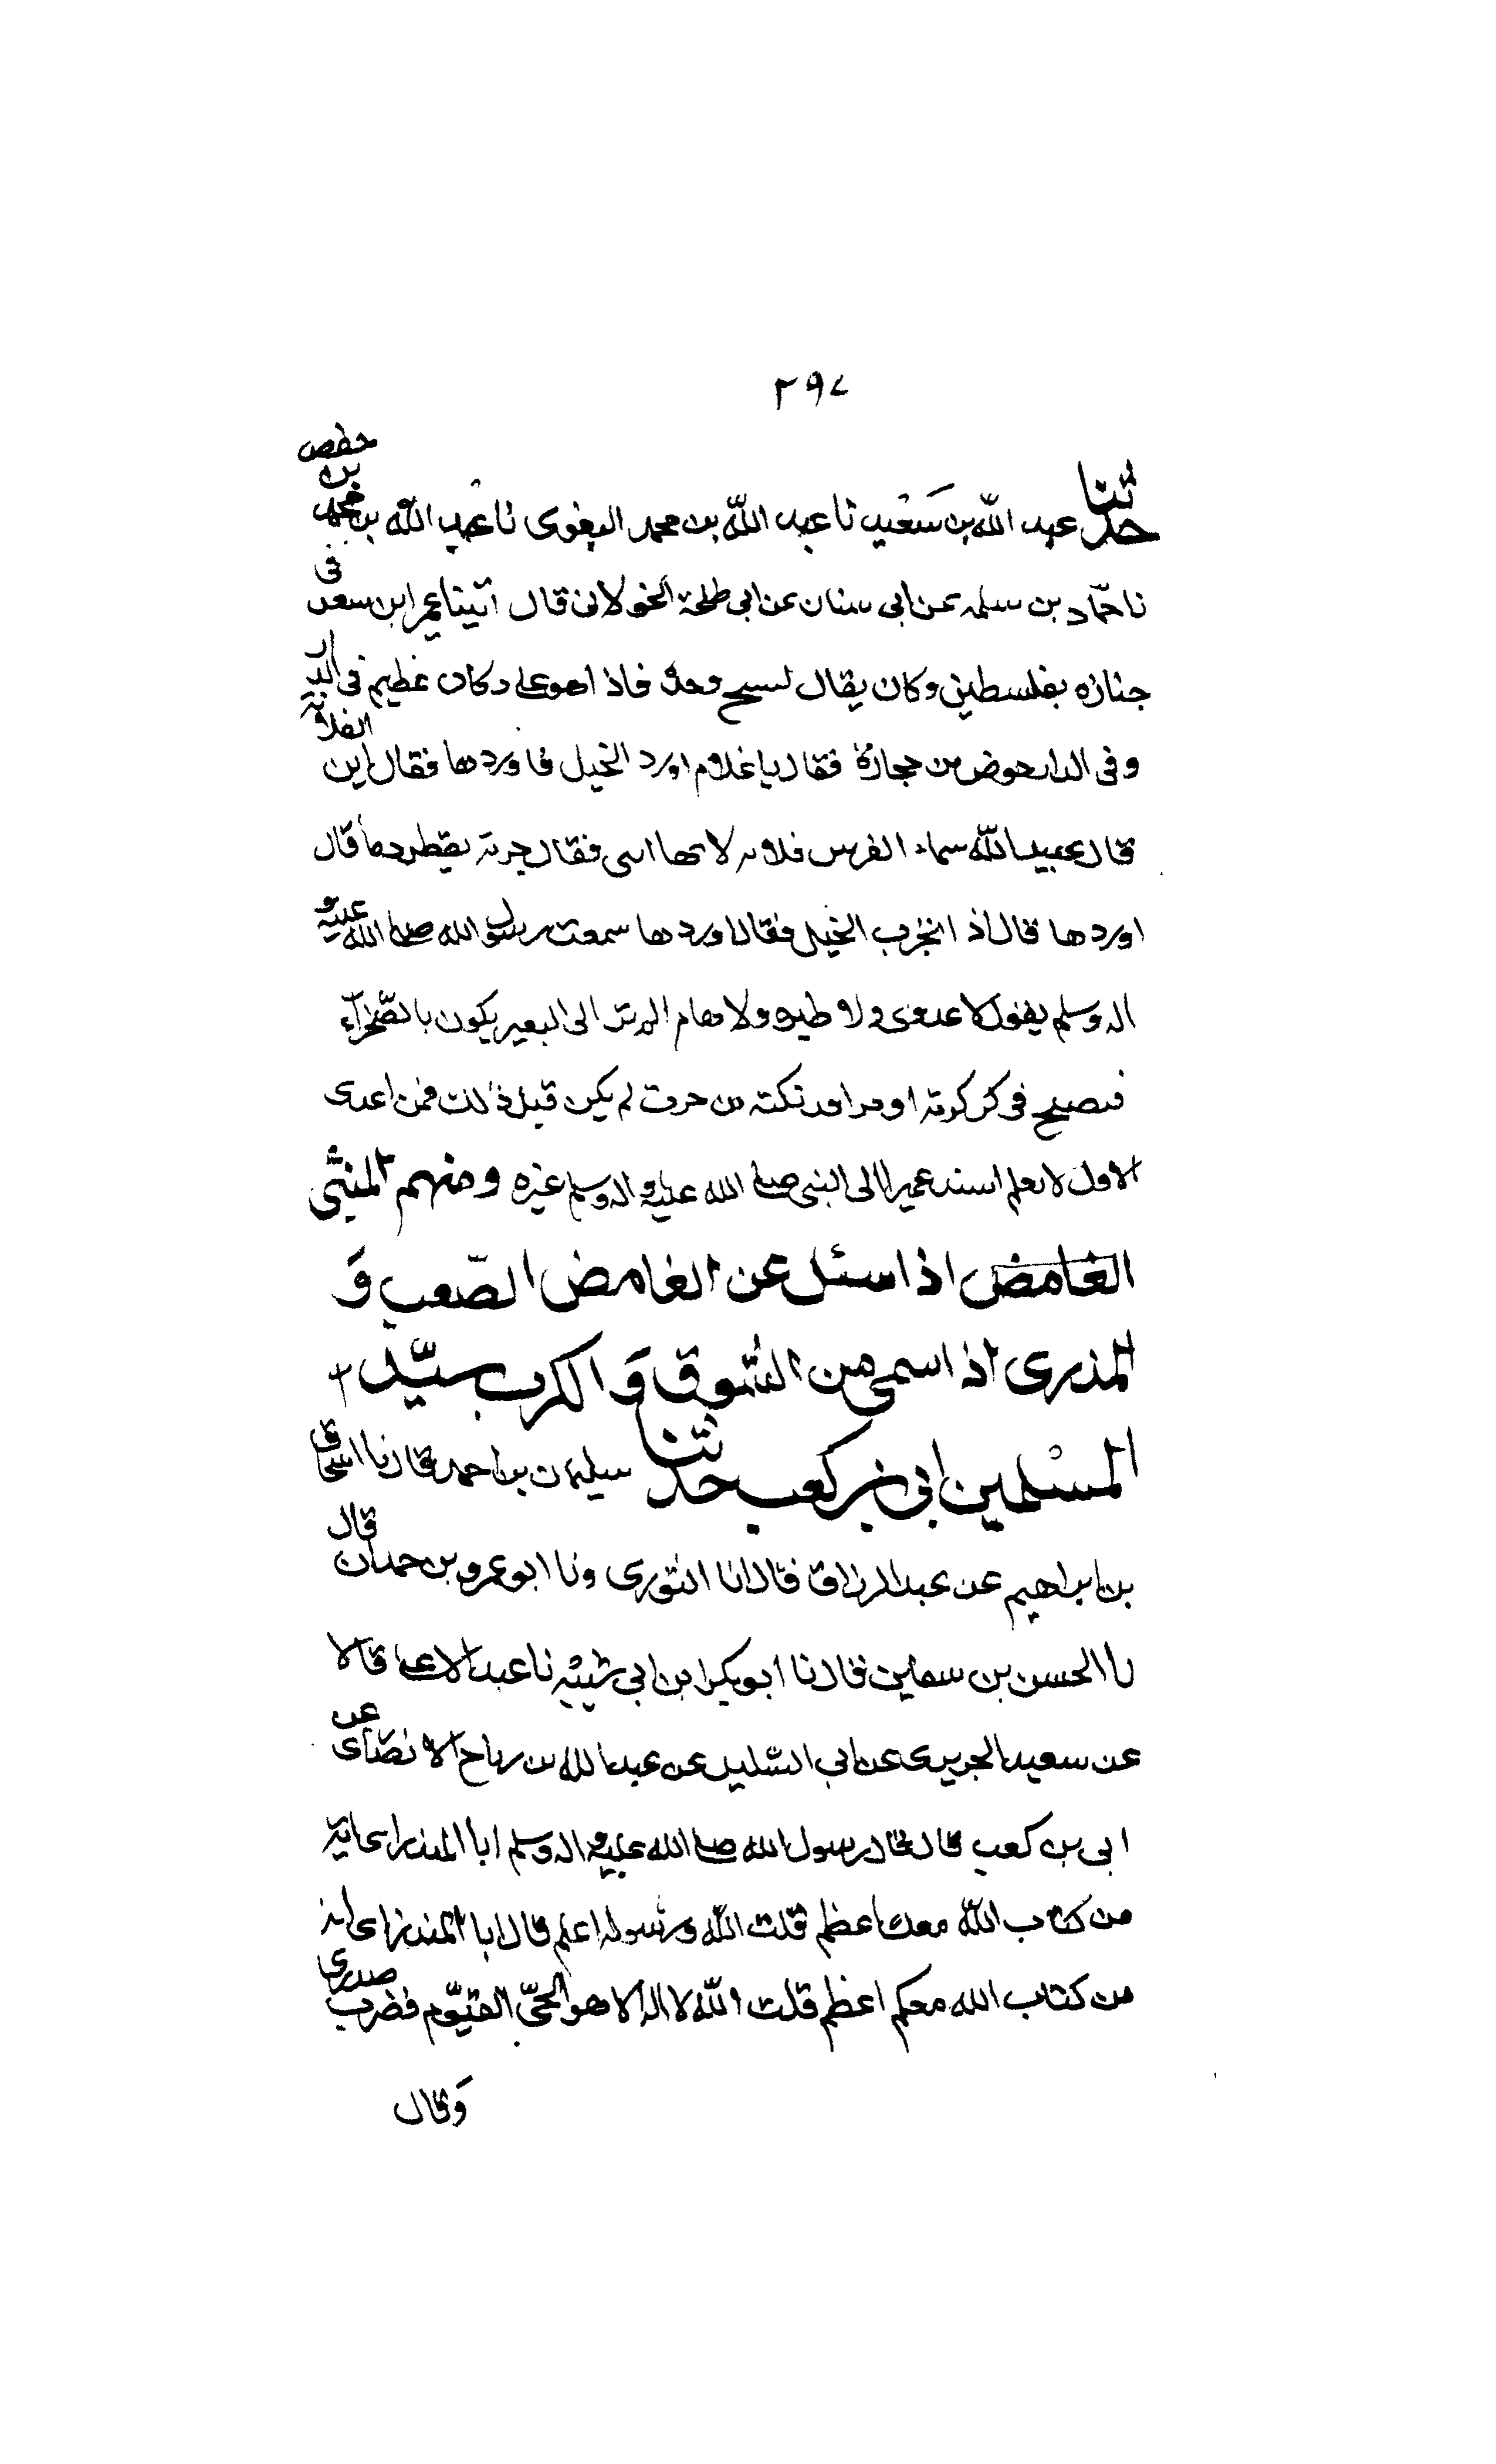 ٢٩٧
حدثنا عبد الله بن سَعْيد نا عبد اللّٰه بن محمد البغوى نا عبيد اللّٰه بن محمد بن حفص
نا حمّاد بن سلمه عن ابى سنان عن ابى طلحة الخولانى قال اتينا عمير ابن سعد فى
جنازه بفلسطين وكان يقال نسيج وحده فاذا هو على دكان عظيم فى الدار
وفى الدار حوض من حجارة فقال يا غلام اورد الخيل فاوردها فقال اين الفلانة
قال عبيد اللّٰه سماء الفرس فلانه لانها انثى فقال جربة يقطر دما قال
اوردها قال اذا تجرب الخيل فقال اوردها سمعت رسول الله صلى الله عليه و
اله وسلم يقول لا عدوى ولا طيره ولا هام الم تر الى البعير يكون بالصّحرآء
فيصبح فى كركرته او مراقه نكتة من جرب لم يكن قبل ذلك فمن اعدى
الاول لا نعلم اسند عمير الى النبى صلى الله عليه و اله وسلم غيره ومنهم المنبئى
الغامض اذا سئل عن الغامض الصّعب وَ
المذرى اذا سمى من الشوق وَ الكرب سيّد
المسْلمين ابى بن كعب حدثنا سليمان بن احمد قال نا اسحاق
بن ابراهيم عن عبد الرزاق قال انا الثورى ونا ابو عمرو بن حمدان قال
نا الحسن بن سفين قال نا ابو بكر ابن ابى شيبة نا عبد الاعلى قالا
عن سعيد الجريرى عن ابى السليل عن عبد الله بن رباح الانصارى عن
ابى بن كعب قال قال رسول الله صلى الله عليه و اله وسلم ابا المنذر اى اية
من كتاب اللّٰه معك اعظم قلت اللّٰه ورسوله اعلم قال ابا المنذر اى اية
من كتاب الله معكم اعظم قلت اللّٰه لا اله الا هو الحىّ القيّوم فضرب صدرى
وَقال